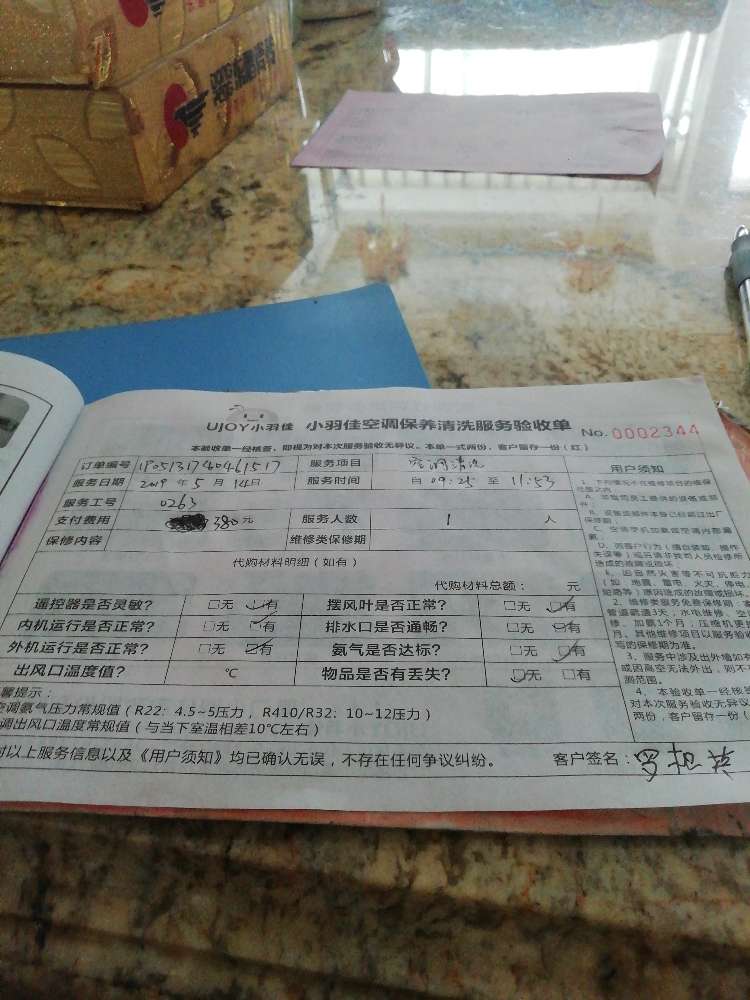 UJOY小羽佳 小羽佳空调保养清洗服务验收单 No. 0002344
本验收单一经核签，即视为对本次服务验收无异议。本单一式两份，客户留存一份（红）
订单编号 1905131740461517 服务项目 空调清洗 用户须知
服务日期 2019 年 5 月 14日 服务时间 自 09:25 至 11:53
服务工号 0263
支付费用 380 元 服务人数 1 人
保修内容 维修类保修期
代购材料明细（如有）
代购材料总额： 元
遥控器是否灵敏? □无 □有 摆风叶是否正常? □无 □有
内机运行是否正常? □无 □有 排水口是否通畅? □无 □有
外机运行是否正常? □无 □有 氨气是否达标? □无 □有
出风口温度值? ℃ 物品是否有丢失? □无 □有
馨提示：
空调氨气压力常规值（R22：4.5~5压力，R410/R32：10~12压力）
调出风口温度常规值（与当下室温相差10℃左右）
对以上服务信息以及《用户须知》均已确认无误，不存在任何争议纠纷。 客户签名：
3、服务中涉及出外墙如有
或因高空无法外出，则不
测范围。
4、本验收单一经核签
对本次服务验收无异议
两份，客户留存一份（